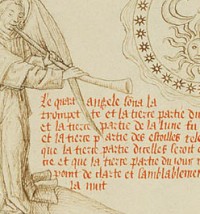 Le quart angele sona la
trompet te et la tierce partie du
et la tierce partie de la lune fu
et la tierce partie des estoilles tele
que la tierce partie dicelles seroit o
tie et que la tierce partie du iour n
point de clarte et samblablement
la nuit